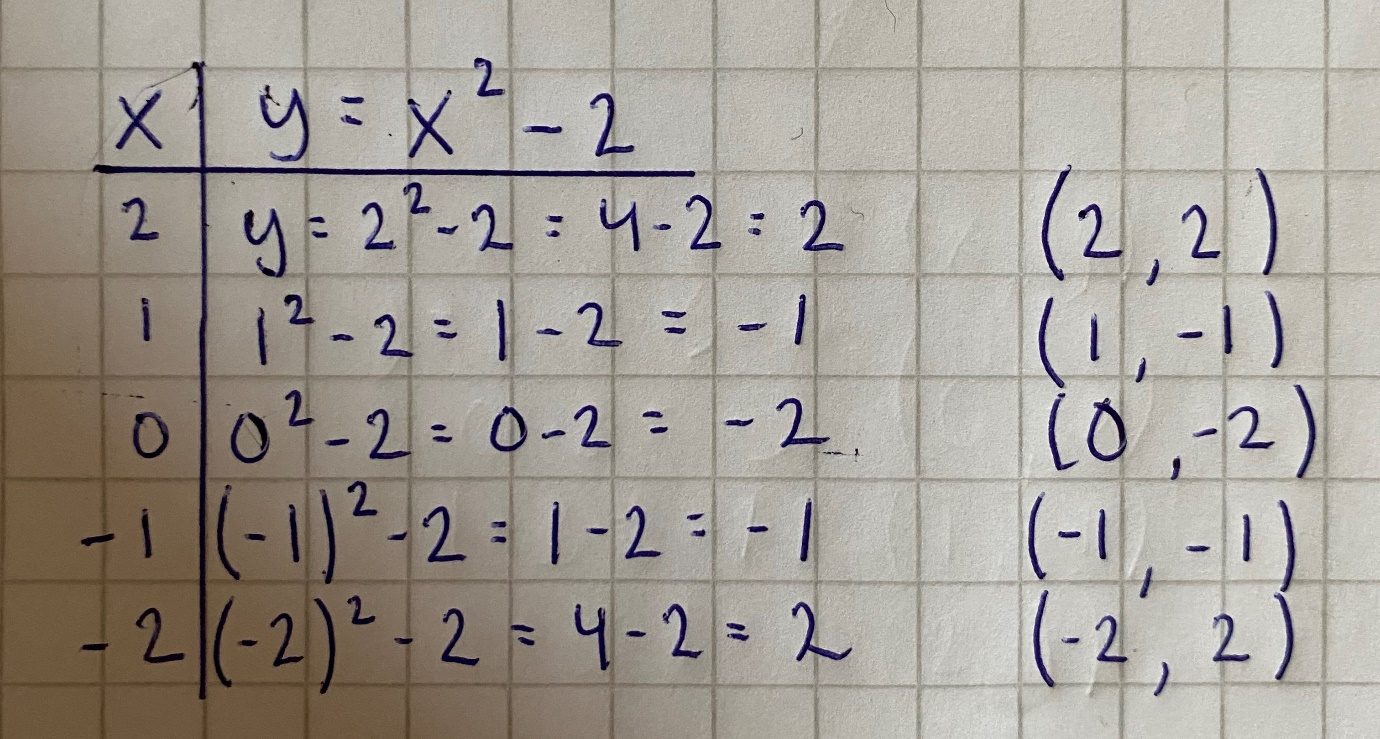 x | y = x² - 2
2 | y = 2² - 2 = 4 - 2 = 2 (2, 2)
1 | 1² - 2 = 1 - 2 = -1 (1, -1)
0 | 0² - 2 = 0 - 2 = -2 (0, -2)
-1 | (-1)² - 2 = 1 - 2 = -1 (-1, -1)
-2 | (-2)² - 2 = 4 - 2 = 2 (-2, 2)